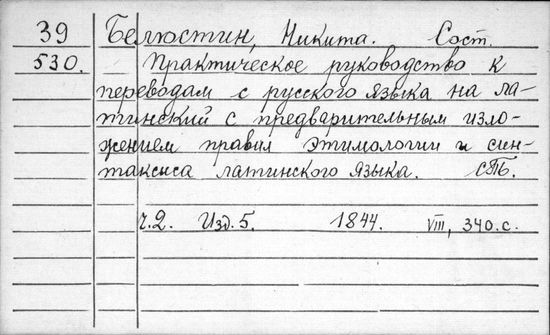 39 Белюстин, Никита. Сост.
530. Практическое руководство к
переводам с русского языка на ла-
тинский с предварительным изло-
жением правил этимологии и син-
таксиса латинского языка. СПб.
ч.2. Изд. 5. 1844. VIII, 340.с.